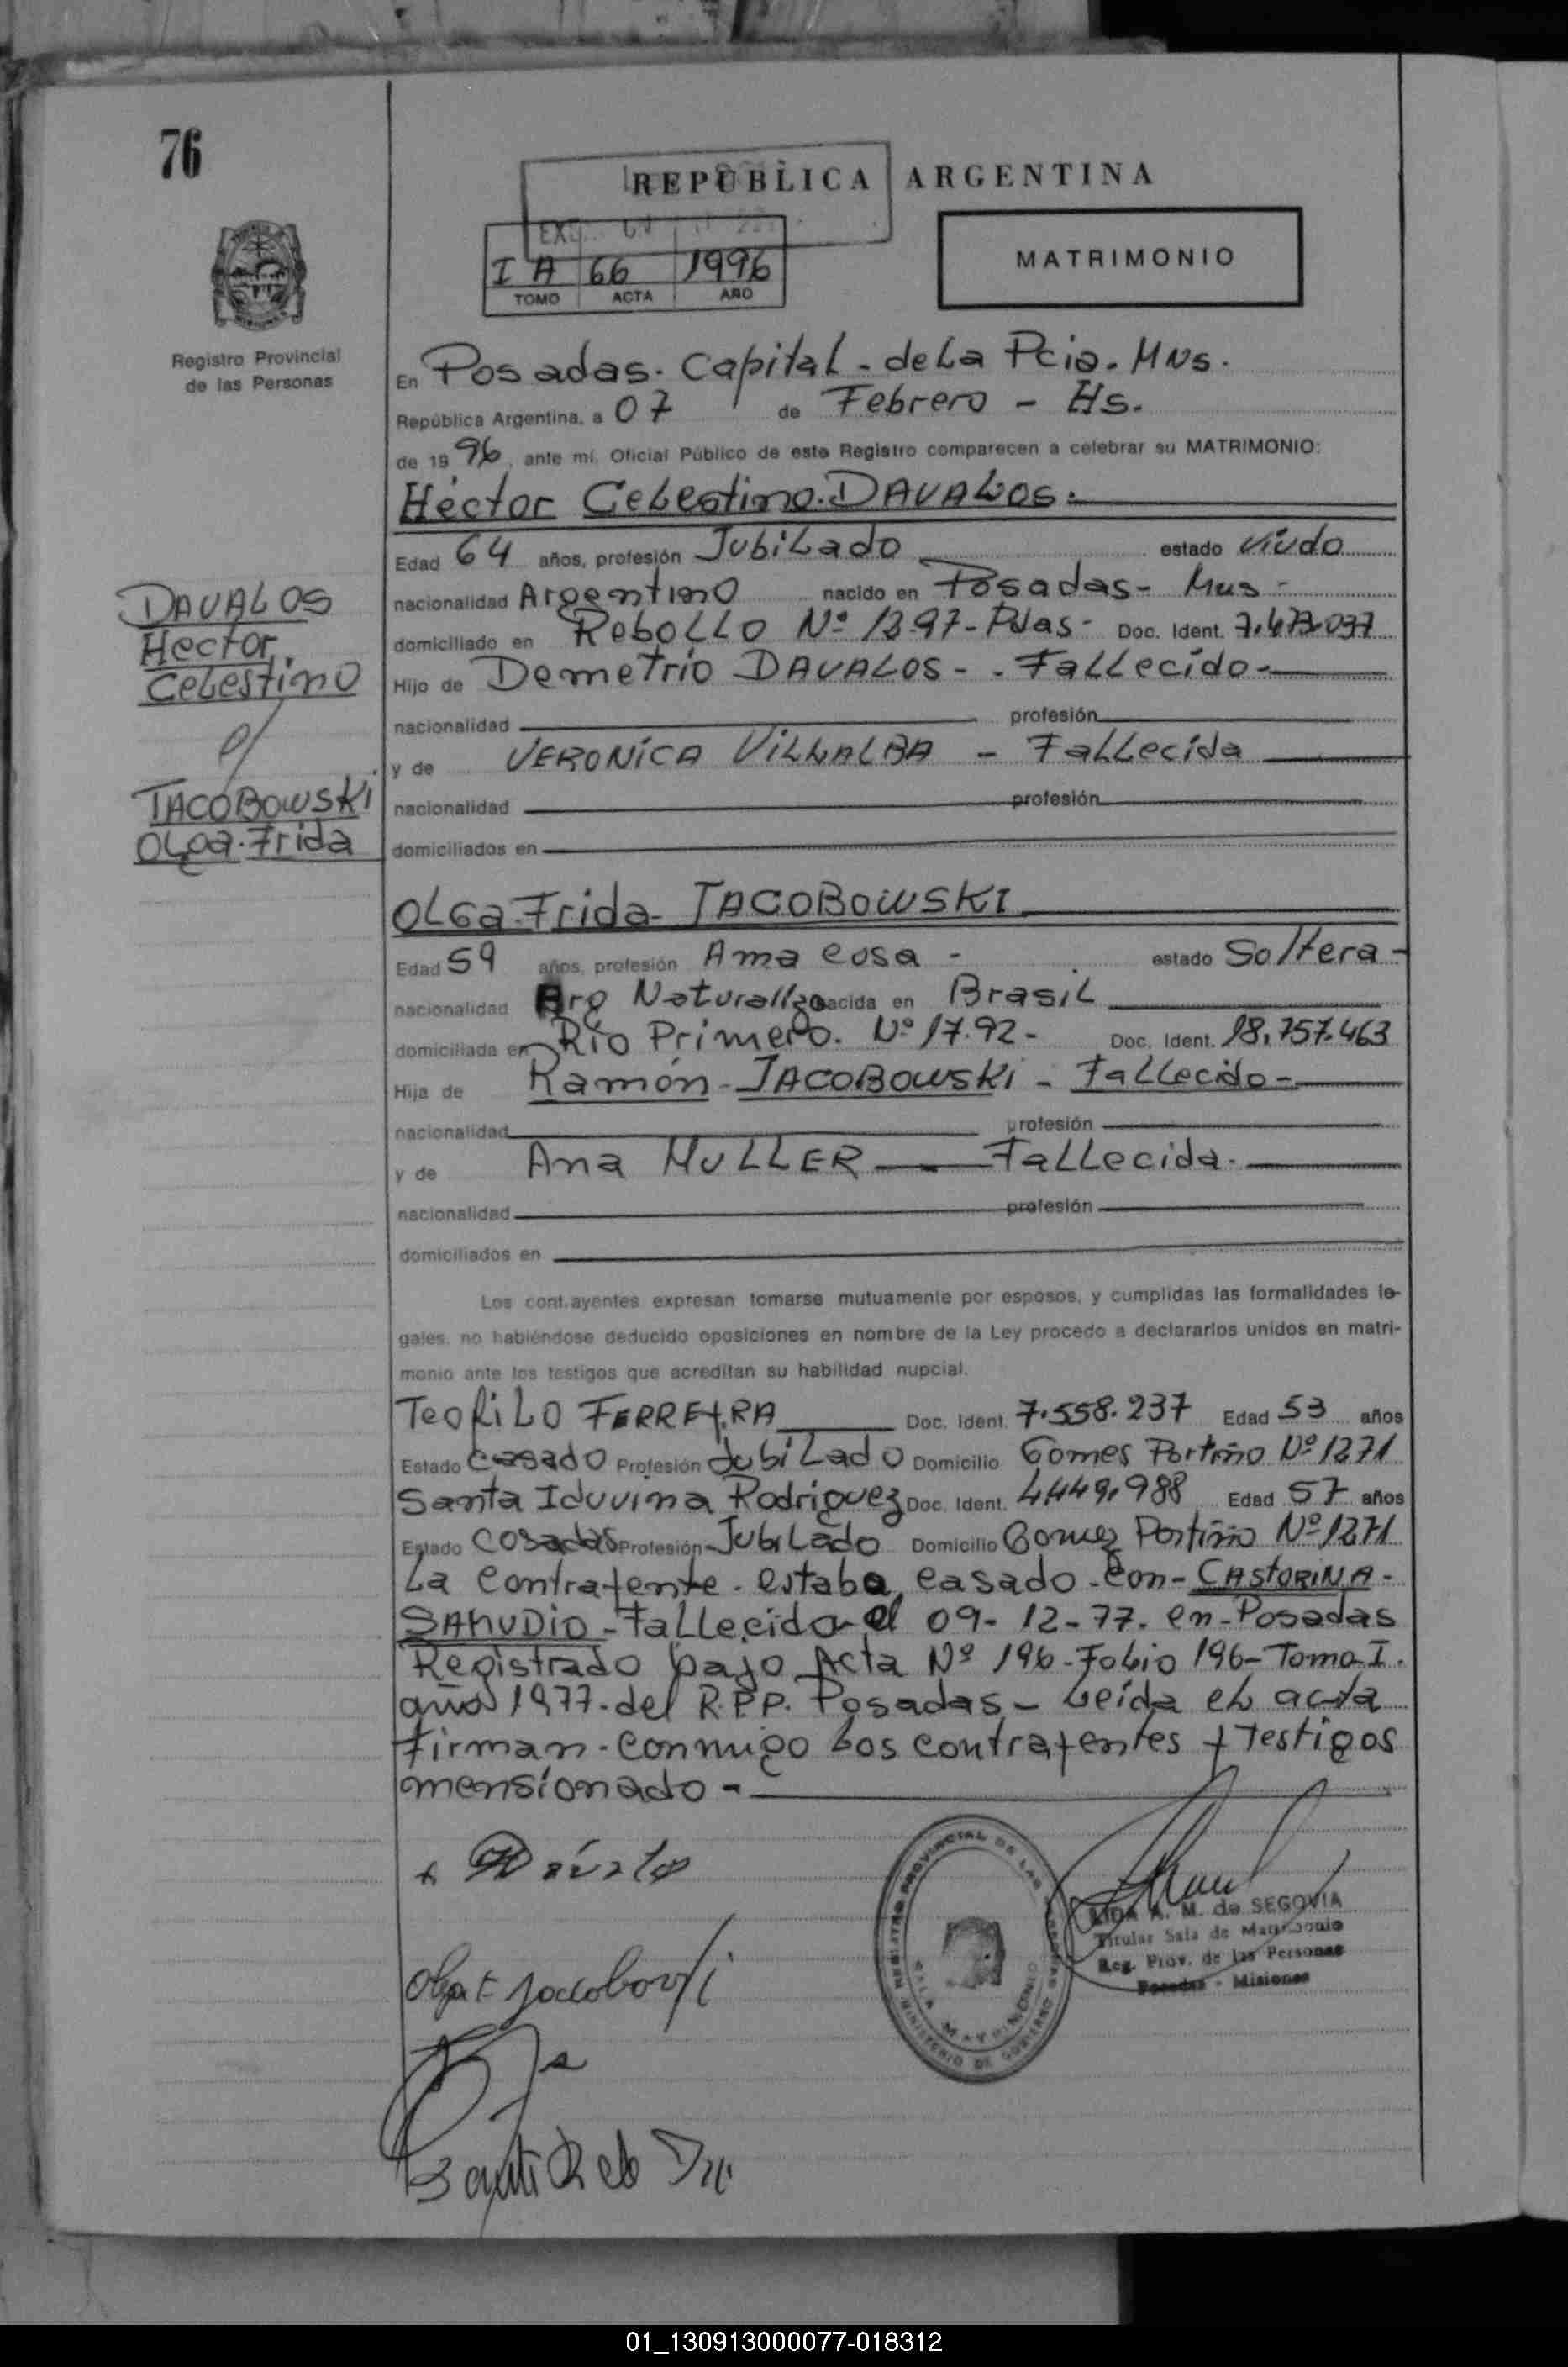 76
REPÚBLICA ARGENTINA
I A 66 1996
TOMO ACTA AÑO
MATRIMONIO
Registro Provincial
de las Personas
En Posadas. Capital - de La Pcia. Mns.
República Argentina, a 07 de Febrero - Hs.
de 1996, ante mí, Oficial Público de este Registro comparecen a celebrar su MATRIMONIO:
Héctor Celestino. DAVALOS.
Edad 64 años, profesión Jubilado estado viudo
nacionalidad Argentino nacido en Posadas - Mns -
domiciliado en Rebollo Nº 13.97 - Pdas - Doc. Ident. 7.473.037
Hijo de Demetrio DAVALOS - - Fallecido -
nacionalidad profesión
y de VERONICA VILLALBA - Fallecida
nacionalidad profesión
domiciliados en
DAVALOS
Hector
Celestino
c/
JACOBOWSKI
Olga. Frida
OLGa. Frida - JACOBOWSKI
Edad 59 años, profesión Ama casa - estado Soltera -
nacionalidad Arg Naturaliza nacida en Brasil
domiciliada en Río Primero. Nº 17.92 - Doc. Ident. 18.757.463
Hija de Ramón - JACOBOWSKI - Fallecido -
nacionalidad profesión
y de Ana MULLER - Fallecida.
nacionalidad profesión
domiciliados en
Los contrayentes expresan tomarse mutuamente por esposos, y cumplidas las formalidades le-
gales, no habiéndose deducido oposiciones en nombre de la Ley procedo a declararlos unidos en matri-
monio ante los testigos que acreditan su habilidad nupcial.
Teofilo FERREYRA Doc. Ident. 7.558.237 Edad 53 años
Estado casado Profesión Jubilado Domicilio Gomes Portiño Nº 1271
Santa Iduvina Rodriguez Doc. Ident. 4.449.988 Edad 57 años
Estado Cosadas Profesión Jubilado Domicilio Gomez Portiño Nº 1271
La contrayente. estaba casado - con - CASTORINA -
SAMUDIO - Fallecida el 09 - 12 - 77. en - Posadas
Registrado bajo Acta Nº 196 - Folio 196 - Tomo I.
año 1977 - del R.P.P. Posadas - Leída el acta
firman - conmigo Los contrayentes y Testigos
mensionado -
REGISTRO PROVINCIAL DE LAS PERSONAS
SALA MATRIMONIO
MINISTERIO DE GOBIERNO
LIDA A. M. de SEGOVIA
Titular Sala de Matrimonio
Reg. Prov. de las Personas
Posadas - Misiones
01_130913000077-018312